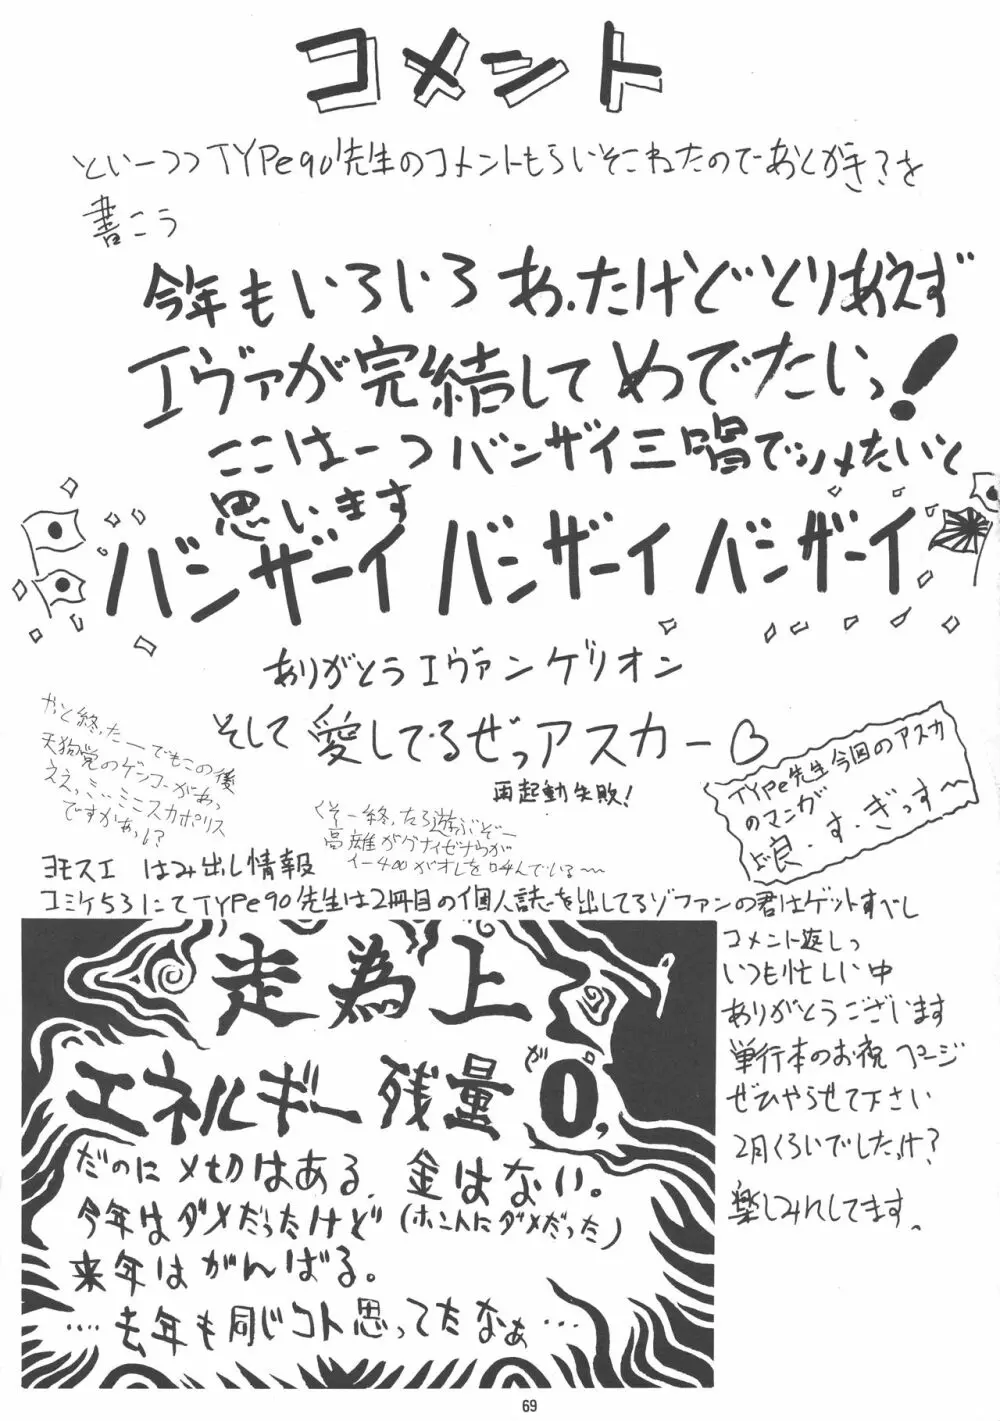 コメント
といーつつTYPe90'先生のコメントもらいそこねたのであとがき?を
書こう
今年もいろいろあったけどとりあえず
エヴァが完結してめでたいっ!
ここは一つバンザイ三唱でシメたいと
思います
バンザーイ バンザーイ バンザーイ
ありがとうエヴァンゲリオン
そして愛してるぜっアスカー♡
再起動失敗!
やっと終ったーでもこの後
天狗覚のゲンコーがあっ
ええっミ、ミニスカポリス
ですかあっ!?
くそー終ったら遊ぶぞー
高雄が
イー400がオレを呼んでいる〜
TYPe先生今回のアスカ
のマンガ
良・す・ぎっす〜
ヨモスエ はみ出し情報
コミケ53にてTYPe90'先生は2冊目の個人誌を出してるゾファンの君はゲットすべし
コメント返しっ
いつも忙しい中
ありがとうございます
単行本のお祝ページ
ぜひやらせて下さい
2月くらいでしたっけ?
楽しみにしてます。
走為上
エネルギー残量が0。
だのに〆切はある。金はない。
今年はダメだったけど(ホントにダメだった)
来年はがんばる。
‥‥去年も同じコト思ってたなぁ…
69